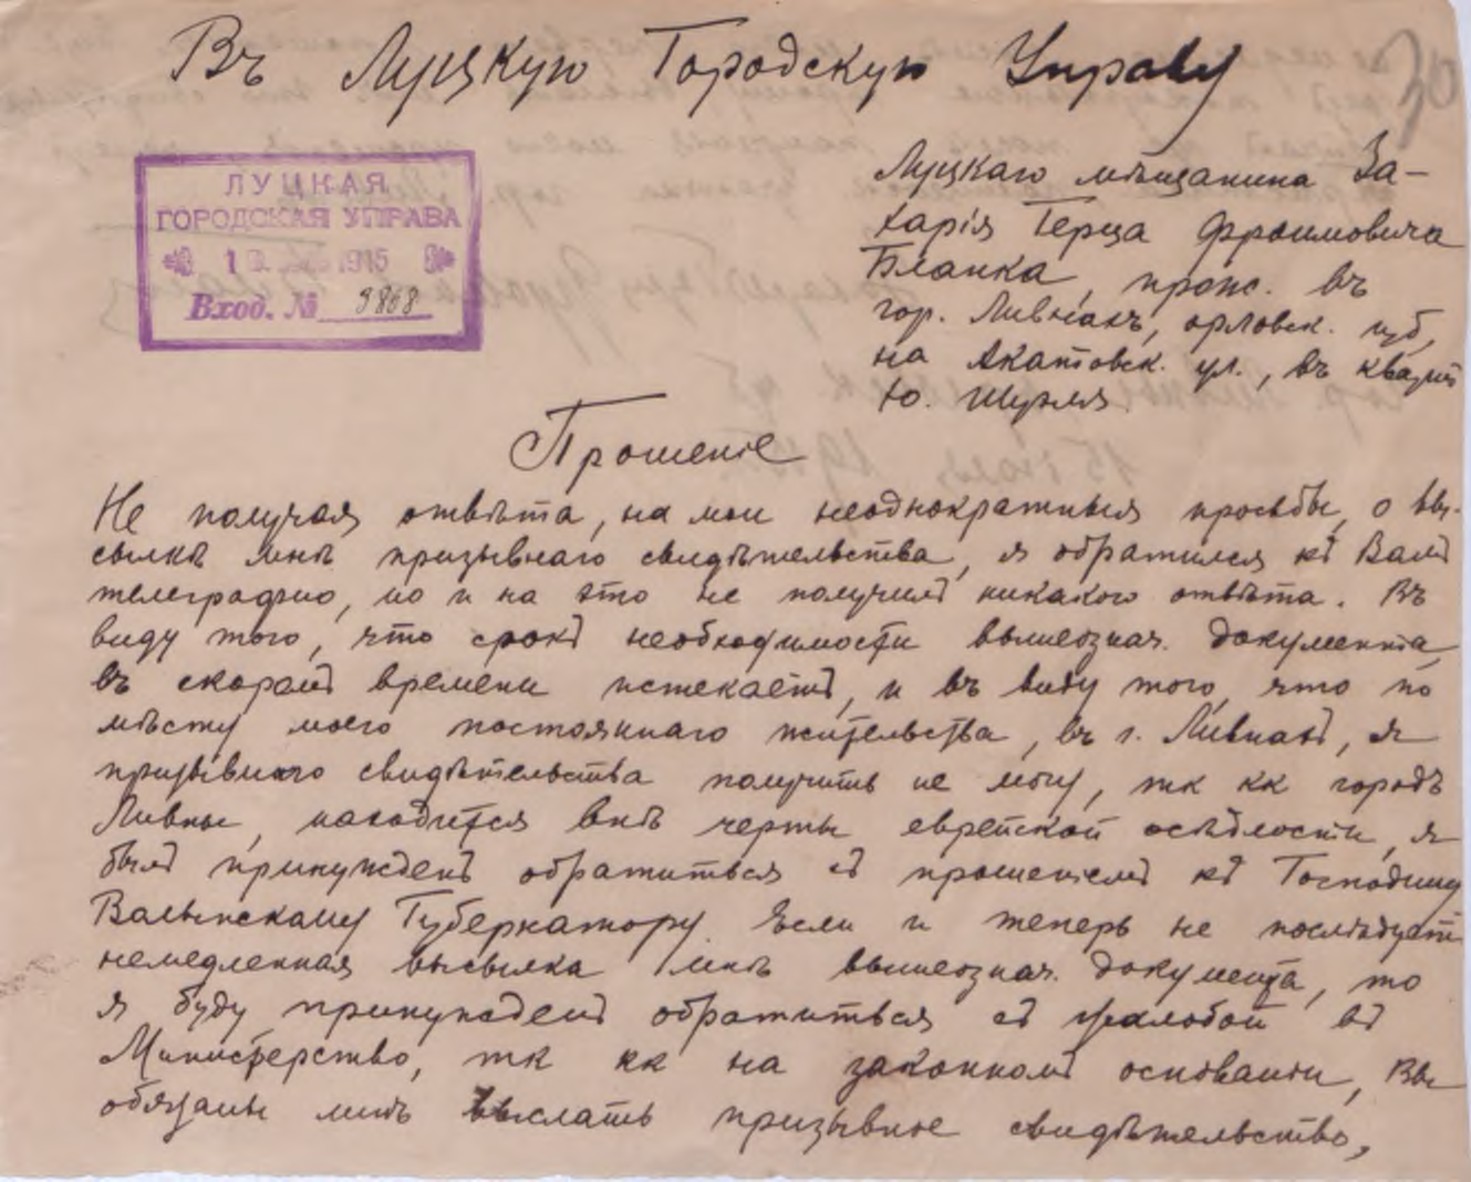 Въ Луцкую Городскую Управу
ЛУЦКАЯ
ГОРОДСКАЯ УПРАВА
1915
Вход. № 9868
Луцкаго мѣщанина За-
харія Герца Фроимовича
Бланка, прож. въ
гор. Ливнахъ, орловск. губ,
на Акатовск. ул., въ кварт
Ю. Шурля.
Прошеніе
Не получая отвѣта, на мои неоднократныя просьбы, о вы-
сылкѣ мнѣ призывнаго свидѣтельства, я обратился къ Вамъ
телеграфно, но и на это не получилъ никакого отвѣта. Въ
виду того, что срокъ необходимости вышеознач. документа,
въ скоромъ времени истекаетъ, и въ виду того, что по
мѣсту моего постояннаго жительства, въ г. Ливнахъ, я
призывного свидѣтельства получить не могу, тк кк городъ
Ливны, находится внѣ черты еврейской осѣдлости, я
былъ принужденъ обратиться съ прошеніемъ къ Господину
Волынскому Губернатору. Если и теперь не послѣдуетъ
немедленная высылка мнѣ вышеознач. документа, то
я буду принужденъ обратиться съ жалобой въ
Министерство, тк кк на законномъ основаніи, Вы
обязаны мнѣ выслать призывное свидѣтельство,